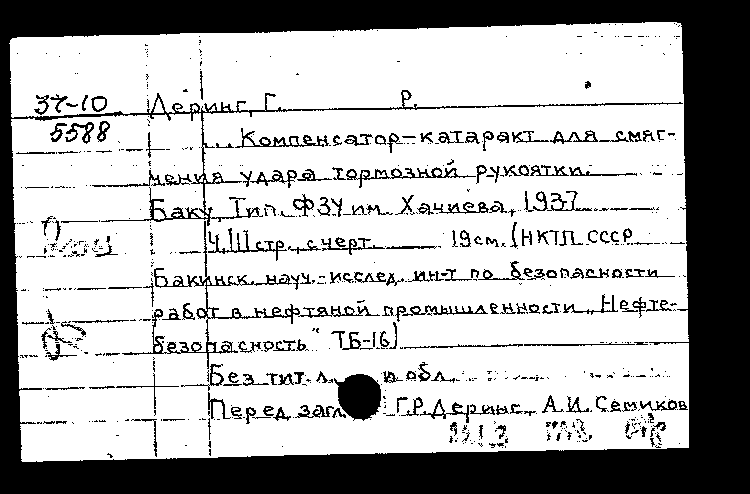 37-10 Деринг, Г. Р.
5588 ...Компенсатор-катаракт для смяг-
чения удара тормозной рукоятки.
Баку, Тип. ФЗУ им. Ханиева, 1937
4, III стр., с черт. 19 см. (НКТП СССР
Бакинск. науч.-исслед. ин-т по безопасности
работ в нефтяной промышленности „Нефте-
безопасность" ТБ-16)
Без тит. л. и обл.
Перед загл. Г.Р. Деринг, А.И. Семиков